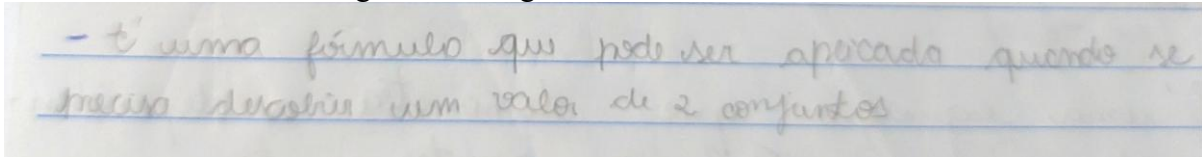 - É uma fórmula que pode ser aplicada quando se
precisa descobrir um valor de 2 conjuntos